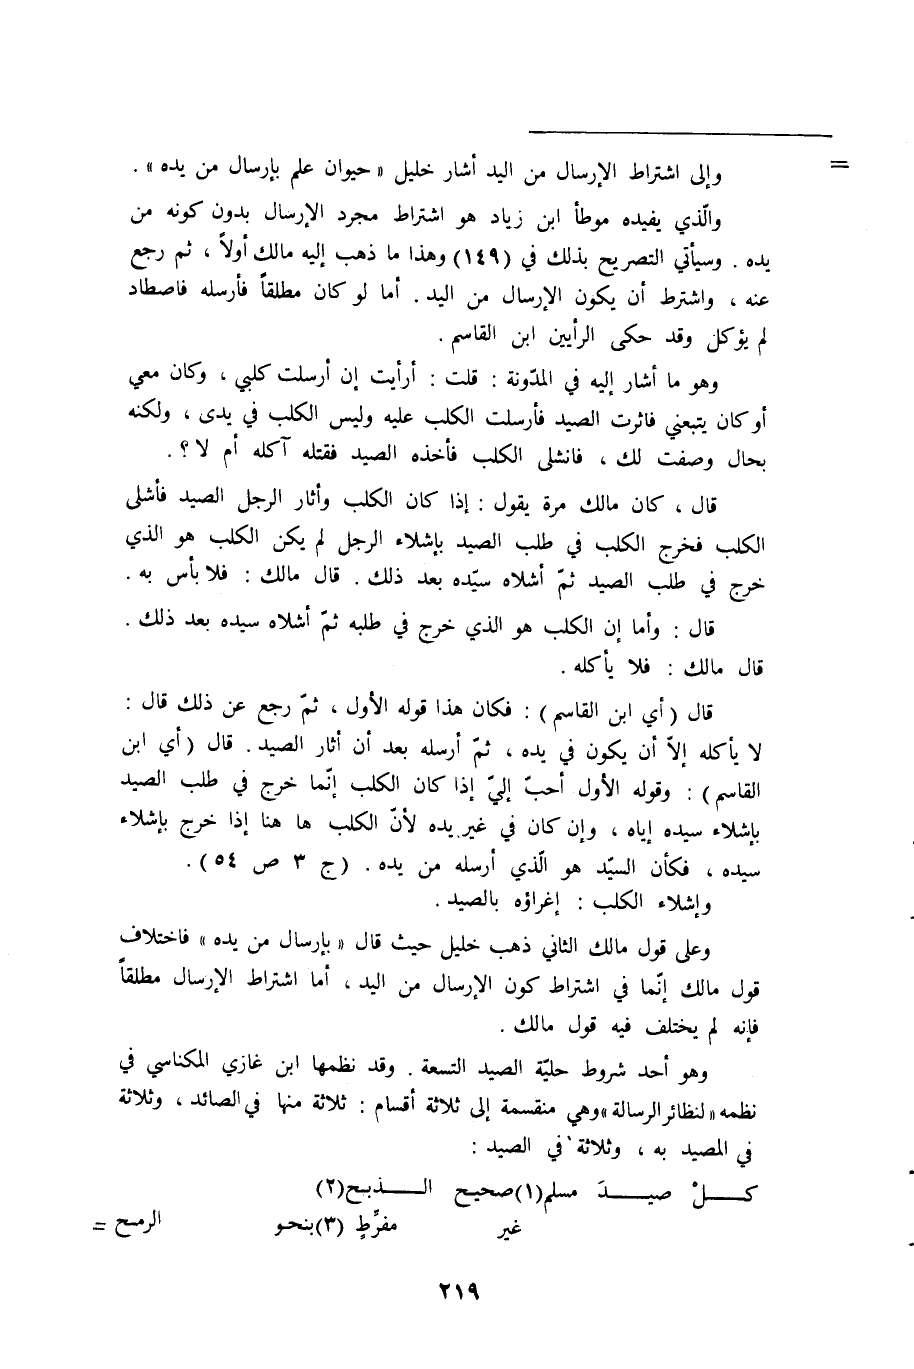 = وإلى اشتراط الإرسال من اليد أشار خليل « حيوان علم بإرسال من يده » .
والّذي يفيده موطأ ابن زياد هو اشتراط مجرد الإرسال بدون كونه من
يده . وسيأتي التصريح بذلك في (١٤٩) وهذا ما ذهب إليه مالك أولاً ، ثم رجع
عنه ، واشترط أن يكون الإرسال من اليد . أما لو كان مطلقاً فأرسله فاصطاد
لم يؤكل وقد حكى الرأيين ابن القاسم .
وهو ما أشار إليه في المدّونة : قلت : أرأيت إن أرسلت كلبي ، وكان معي
أو كان يتبعني فاثرت الصيد فأرسلت الكلب عليه وليس الكلب في يدى ، ولكنه
بحال وصفت لك ، فانشلى الكلب فأخذه الصيد فقتله آكله أم لا ؟ .
قال ، كان مالك مرة يقول : إذا كان الكلب وأثار الرجل الصيد فأشلى
الكلب فخرج الكلب في طلب الصيد بإشلاء الرجل لم يكن الكلب هو الذي
خرج في طلب الصيد ثمّ أشلاه سيّده بعد ذلك . قال مالك : فلا بأس به .
قال : وأما إن الكلب هو الذي خرج في طلبه ثمّ أشلاه سيده بعد ذلك .
قال مالك : فلا يأكله .
قال ( أي ابن القاسم ) : فكان هذا قوله الأول ، ثمّ رجع عن ذلك قال :
لا يأكله إلاّ أن يكون في يده ، ثمّ أرسله بعد أن أثار الصيد . قال ( أي ابن
القاسم ) : وقوله الأول أحبّ إليّ إذا كان الكلب إنّما خرج في طلب الصيد
بإشلاء سيده إياه ، وإن كان في غير يده لأنّ الكلب ها هنا إذا خرج بإشلاء
سيده ، فكأن السيّد هو الّذي أرسله من يده . ( ج ٣ ص ٥٤ ) .
وإشلاء الكلب : إغراؤه بالصيد .
وعلى قول مالك الثاني ذهب خليل حيث قال « بإرسال من يده » فاختلاف
قول مالك إنّما في اشتراط كون الإرسال من اليد ، أما اشتراط الإرسال مطلقاً
فإنه لم يختلف فيه قول مالك .
وهو أحد شروط حليّة الصيد التسعة . وقد نظمها ابن غازي المكناسي في
نظمه « لنظائر الرسالة » وهي منقسمة إلى ثلاثة أقسام : ثلاثة منها في الصائد ، وثلاثة
في المصيد به ، وثلاثة في الصيد :
كــلْ صيــدَ مسلم(١) صحيح الــذبح(٢)
غير مفرِّطٍ (٣) بنحو الرمح =
٢١٩